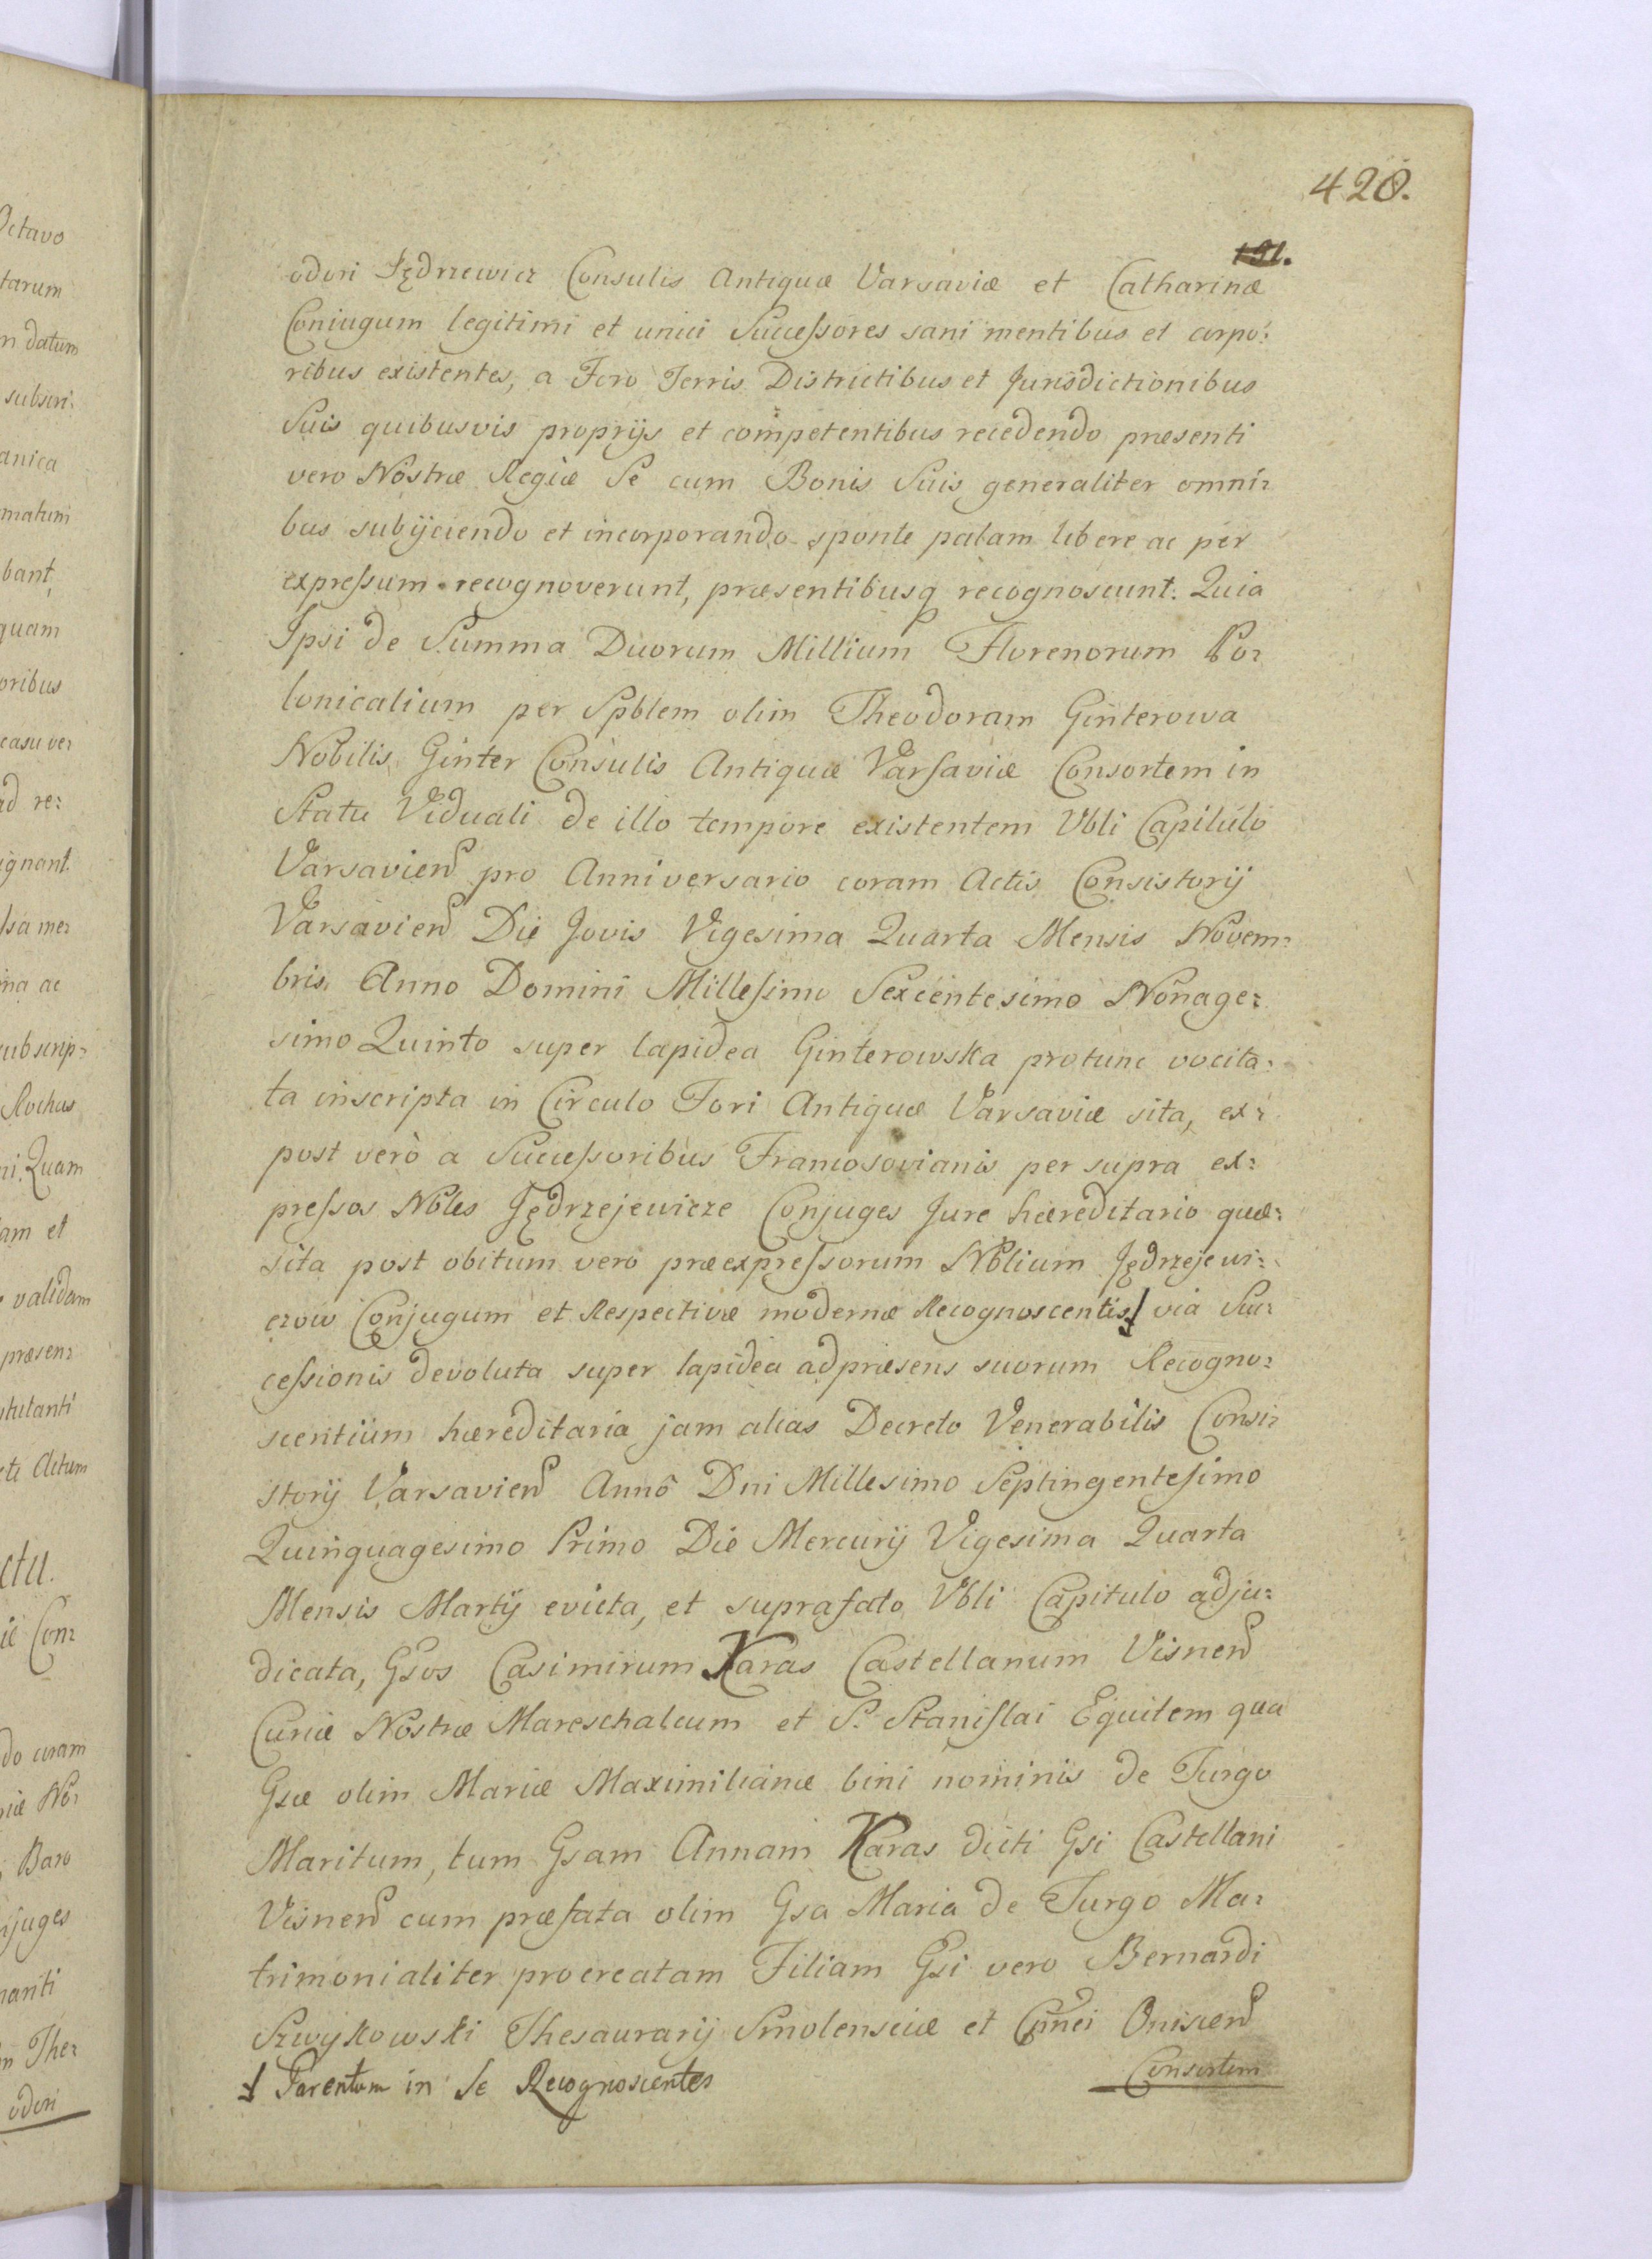 428.
191.
odori Jędrzewicz Consulis Antiquæ Varsaviæ et Catharinæ
Coniugum legitimi et unici Successores sani mentibus et corpo:
ribus existentes, a Foro Terris Districtibus et Jurisdictionibus
Suis quibusvis proprijs et competentibus recedendo, præsenti
vero Nostræ Regiæ Se cum Bonis Suis generaliter omni:
bus subijciendo et incorporando sponte palam libere ac per
expressum recognoverunt, præsentibusq recognoscunt. Quia
Ipsi de Summa Duorum Millium Florenorum Po:
lonicalium per Spblem olim Theodoram Ginterowa
Nobilis Ginter Consulis Antiquæ Varsaviæ Consortem in
Statu Viduali de illo tempore existentem Vbli Capitulo
Varsavien pro Anniversario coram Actis Consistorij
Varsavien Die Jovis Vigesima Quarta Mensis Novem:
bris Anno Domini Millesimo Sexcentesimo Nonage:
simo Quinto super lapidea Ginterowska protunc vocita:
ta inscripta in Circulo Fori Antiquæ Varsaviæ sita, ex:
post verò a Successoribus Francosovianis per supra ex:
pressos Nbles Jędrzejewicze Conjuges Jure hæreditario quæ:
sita post obitum vero præexpressorum Nblium Jędrzejewi:
czow Conjugum et Respective modernæ Recognoscentis ɟ via Suc:
cessionis devoluta super lapidea adpræsens suorum Recogno:
scentium hæreditaria jam alias Decreto Venerabilis Consi:
storij Varsavien Anno Dni Millesimo Septingentesimo
Quinquagesimo Primo Die Mercurij Vigesima Quarta
Mensis Martij evicta, et suprafato Vbli Capitulo adju:
dicata, Gsos Casimirum Karas Castellanum Visnen
Curiæ Nostræ Mareschalcum et S. Stanislai Equitem qua
Gsæ olim Mariæ Maximilianæ bini nominis de Turgo
Maritum, tum Gsam Annam Karas dicti Gsi Castellani
Visnen cum præfata olim Gsa Maria de Turgo Ma:
trimonialiter procreatam Filiam Gsi vero Bernardi
Szwykowski Thesaurarij Smolensciæ et Cmei Oniscen
Consortem
ɟ Parentum in Se Recognoscentes